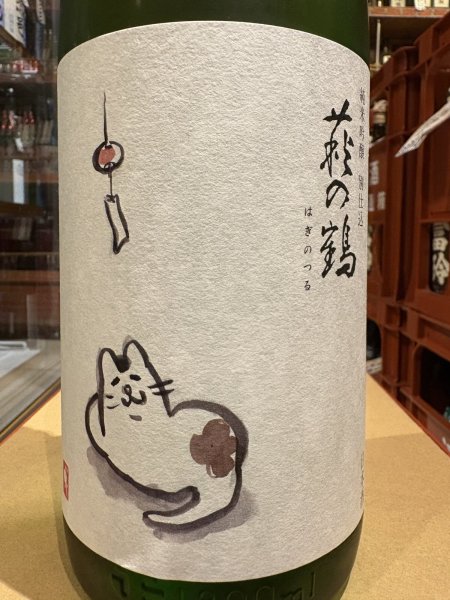 純米吟醸 別仕込
萩の鶴
はぎのつる
1800ml